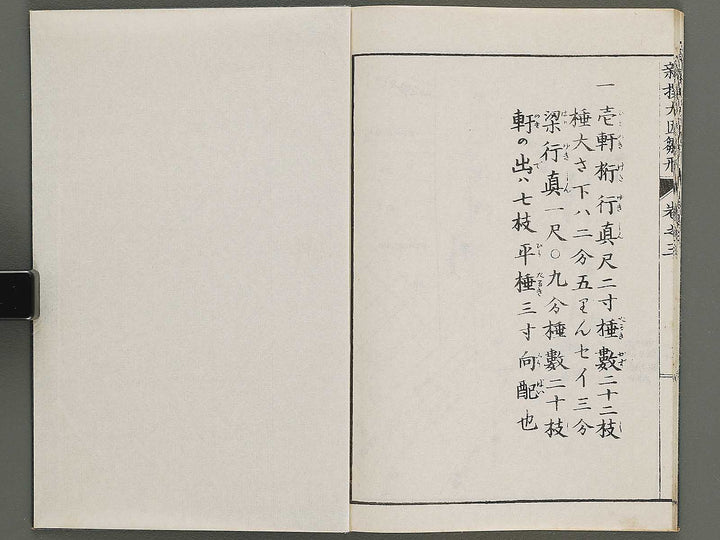 一壱軒桁行真尺二寸棰數二十二枝
棰大さ下ハ二分五りんセイ三分
梁行真一尺〇九分棰數二十枝
軒の出ハ七枝平棰三寸向配也
新撰大匠雛形
卷之三